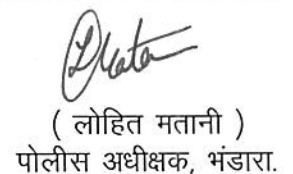 ( लोहित मतानी )
पोलीस अधीक्षक, भंडारा.